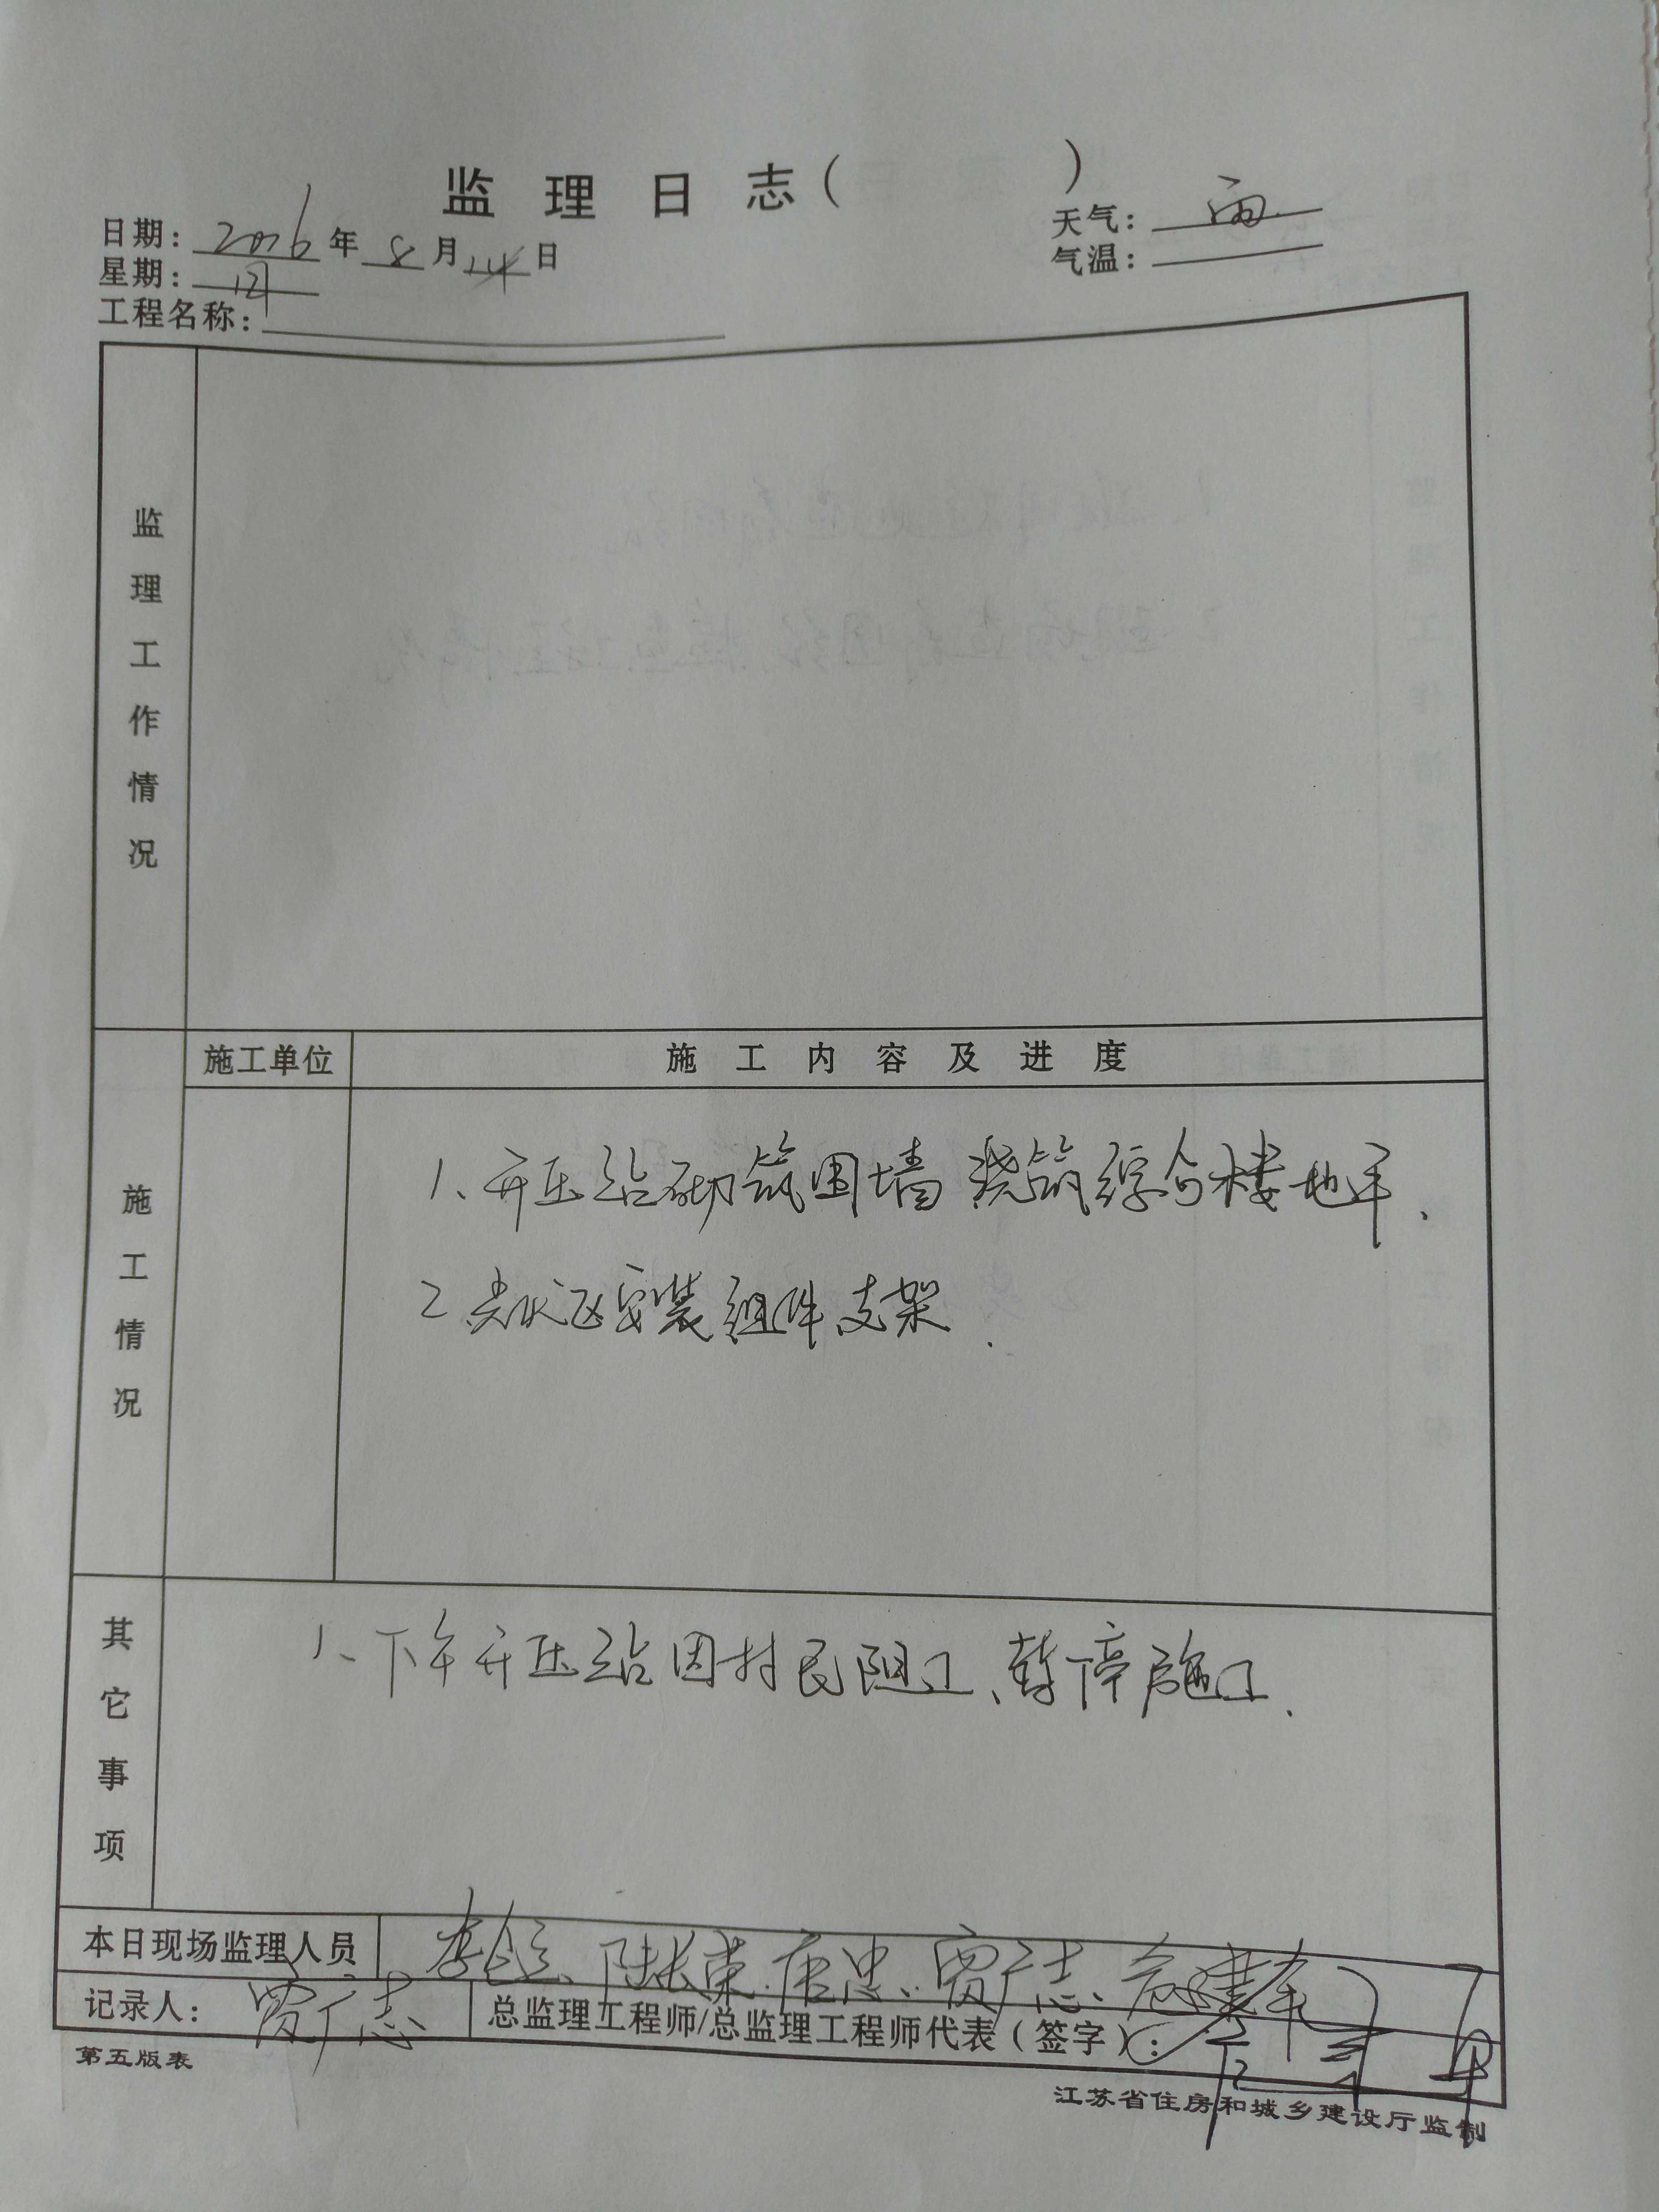 监理日志( )
日期: 2016 年 8 月 24 日
天气: 雨
星期:
气温:
工程名称:
监理工作情况
施工单位
施工内容及进度
施工情况
1、开压站砌筑围墙 浇筑综合楼地平.
2. 区安装组件支架.
其它事项
1、下午开压站因村民阻工、暂停施工.
本日现场监理人员
陆长荣、唐忠、贾广志、
记录人: 贾广志
总监理工程师/总监理工程师代表(签字):
第五版表
江苏省住房和城乡建设厅监制